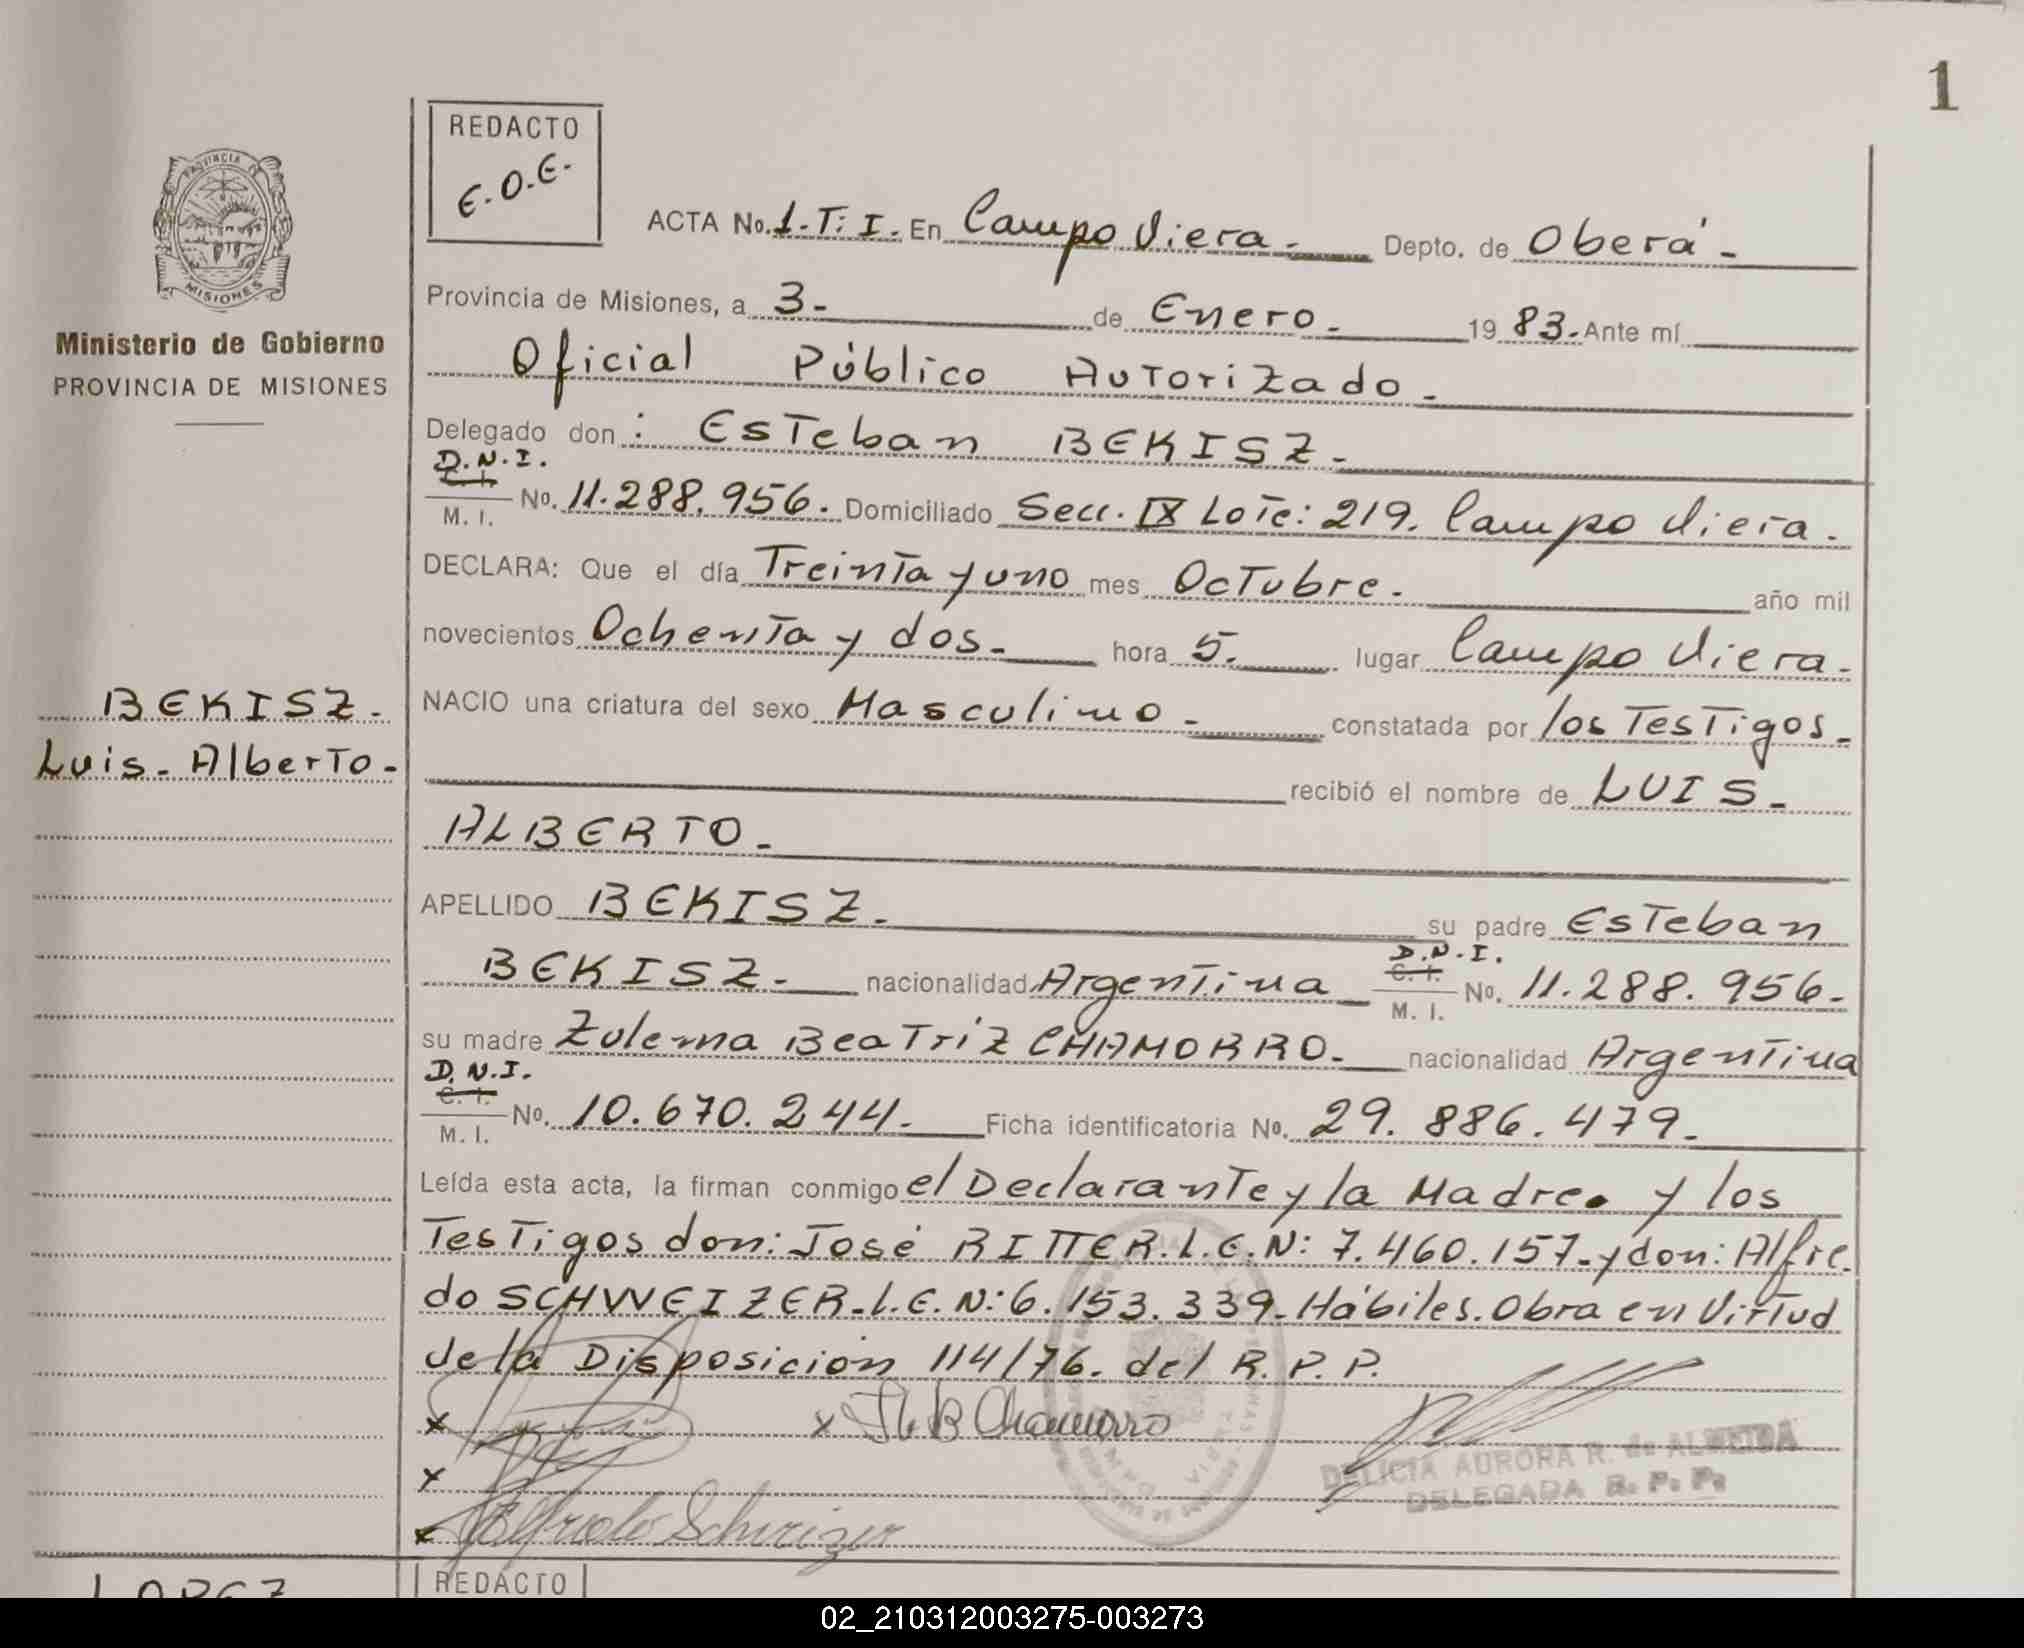 1
REDACTO
E.O.E.
PROVINCIA DE
MISIONES
Ministerio de Gobierno
PROVINCIA DE MISIONES
ACTA No. 1.T:I. En Campo Viera.- Depto. de Oberá.-
Provincia de Misiones, a 3.- de Enero.- 19 83.- Ante mí
Oficial Público Autorizado.-
Delegado don: Esteban BEKISZ.-
D.N.I.
C. I.
M. I. No. 11.288.956. Domiciliado Secc. IX Lote: 219. Campo Viera.
DECLARA: Que el día Treinta y uno mes Octubre.- año mil
novecientos Ochenta y dos.- hora 5.- lugar Campo Viera.-
BEKISZ.-
Luis-Alberto-
NACIO una criatura del sexo Masculino.- constatada por los Testigos.-
recibió el nombre de LUIS.-
ALBERTO.-
APELLIDO BEKISZ.- su padre Esteban
BEKISZ.- nacionalidad Argentina D.N.I. C. I. M. I. No. 11.288.956.-
su madre Zulema Beatriz CHAMORRO.- nacionalidad Argentina
D.N.I.
C. I.
M. I. No. 10.670.244.- Ficha identificatoria No. 29.886.479.-
Leída esta acta, la firman conmigo el Declarante y la Madre. y los
Testigos don: José RITTER.L.E.N: 7.460.157.- y don: Alfre-
do SCHWEIZER.-L.E.N: 6.153.339.- Hábiles. Obra en Virtud
de la Disposicion 114/76. del R.P.P.
x x B Chamorro
x
x Alfredo Schweizer
DELICIA AURORA R. de ALMEIDA
DELEGADA R. P. P.
LOPEZ
REDACTO
02_210312003275-003273